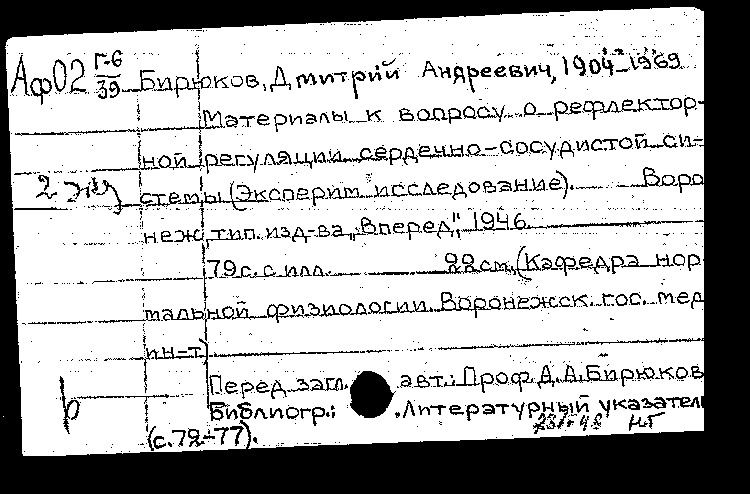 Аф02 Г-6/39 Бирюков, Дмитрий Андреевич, 1904-1969
Материалы к вопросу о рефлектор-
ной регуляции сердечно-сосудистой си-
2 экз стемы (Эксперим. исследование). Воро
неж, тип. изд-ва "Вперед", 1946.
79 с. с илл. 22 см. (Кафедра нор-
мальной физиологии Воронежск. гос. мед
ин-т)
Перед загл. авт.: Проф. Д. А. Бирюков
Библиогр.: Литературный указател
(с. 72-77).
НГ